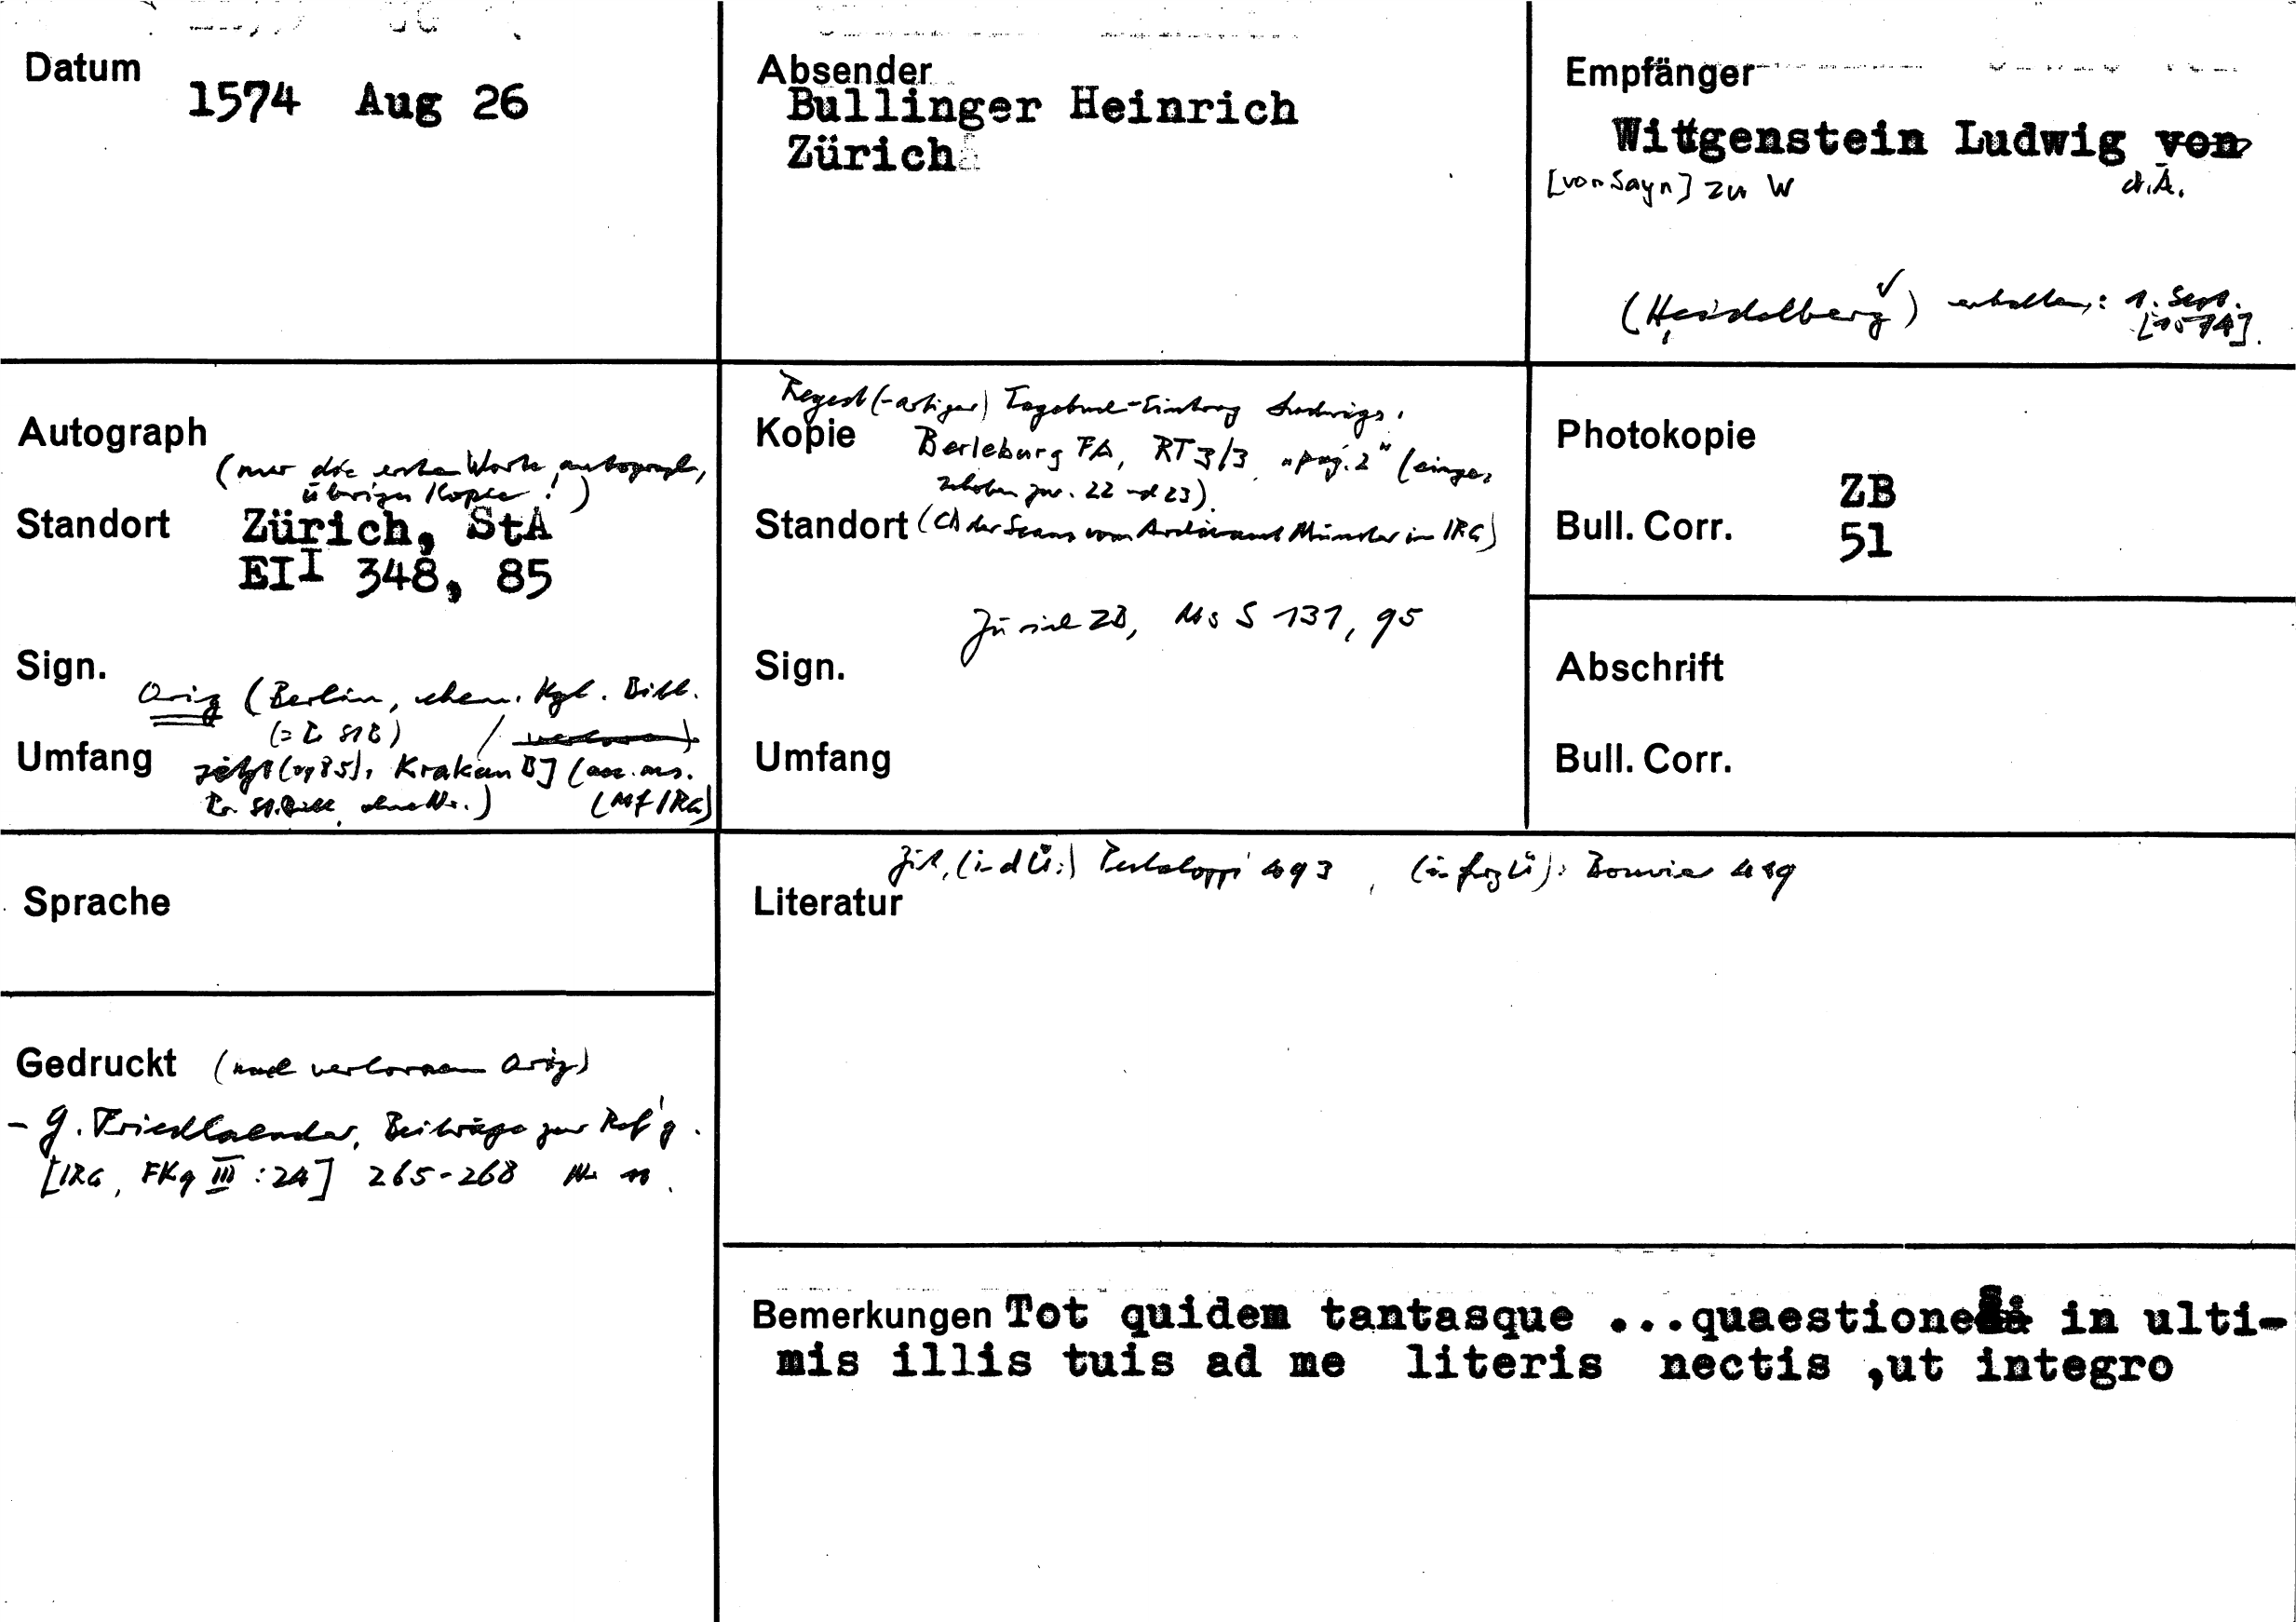 Datum
1574 Aug 26
Absender
Bullinger Heinrich
Zürich
Empfänger
Wittgenstein Ludwig von
[von Sayn] zu W d.Ä.
(Heidelberg) ✓ erhalten: 1. Sept.
[1574].
Autograph
(nur die ersten Worte autograph,
übriges Kopie!)
Standort Zürich, StA
EII 348, 85
Sign.
Orig (Berlin, ehem. Kgl. Bibl.
(= StB) / verloren)
Umfang jetzt Krakau BJ (acc. ms.
ohne Nr.) (Mf IRG)
Regest(-artiger) Tagebuch-Eintrag Ludwigs,
Kopie Berleburg FA, RT 3/3, "pag. 2" (einge-
schoben zw. 22 und 23).
Standort (CD der Scans vom Archivamt Münster in IRG)
Zürich ZB, Ms S 131, 95
Sign.
Umfang
Photokopie
ZB
Bull. Corr. 51
Abschrift
Bull. Corr.
Sprache
Zit. (in dt Ü:) Pestalozzi 493, (in frz Ü): Bouvier 489
Literatur
Gedruckt (nach verlornem Orig)
- G. Friedlaender, Beiträge zur Ref'g.
[IRG, FKg III : 24] 265-268 Nr
Bemerkungen Tot quidem tantasque ...quaestiones in ulti-
mis illis tuis ad me literis nectis ,ut integro